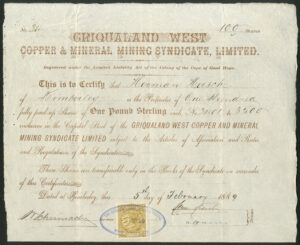 100 Shares
GRIQUALAND WEST
COPPER & MINERAL MINING SYNDICATE, LIMITED.
Registered under the Limited Liability Act of the Colony of the Cape of Good Hope.
This is to Certify that Herman Hirsch
of Kimberley is the Proprietor of One Hundred
fully paid-up Shares of One Pound Sterling each
inclusive in the Capital Stock of the GRIQUALAND WEST COPPER AND MINERAL
MINING SYNDICATE LIMITED subject to the Articles of Association and Rules
and Regulations of the Syndicate.
These Shares are transferable only in the Books of the Syndicate on surrender
of this Certificate.
Dated at Kimberley this 5th day of February 1889